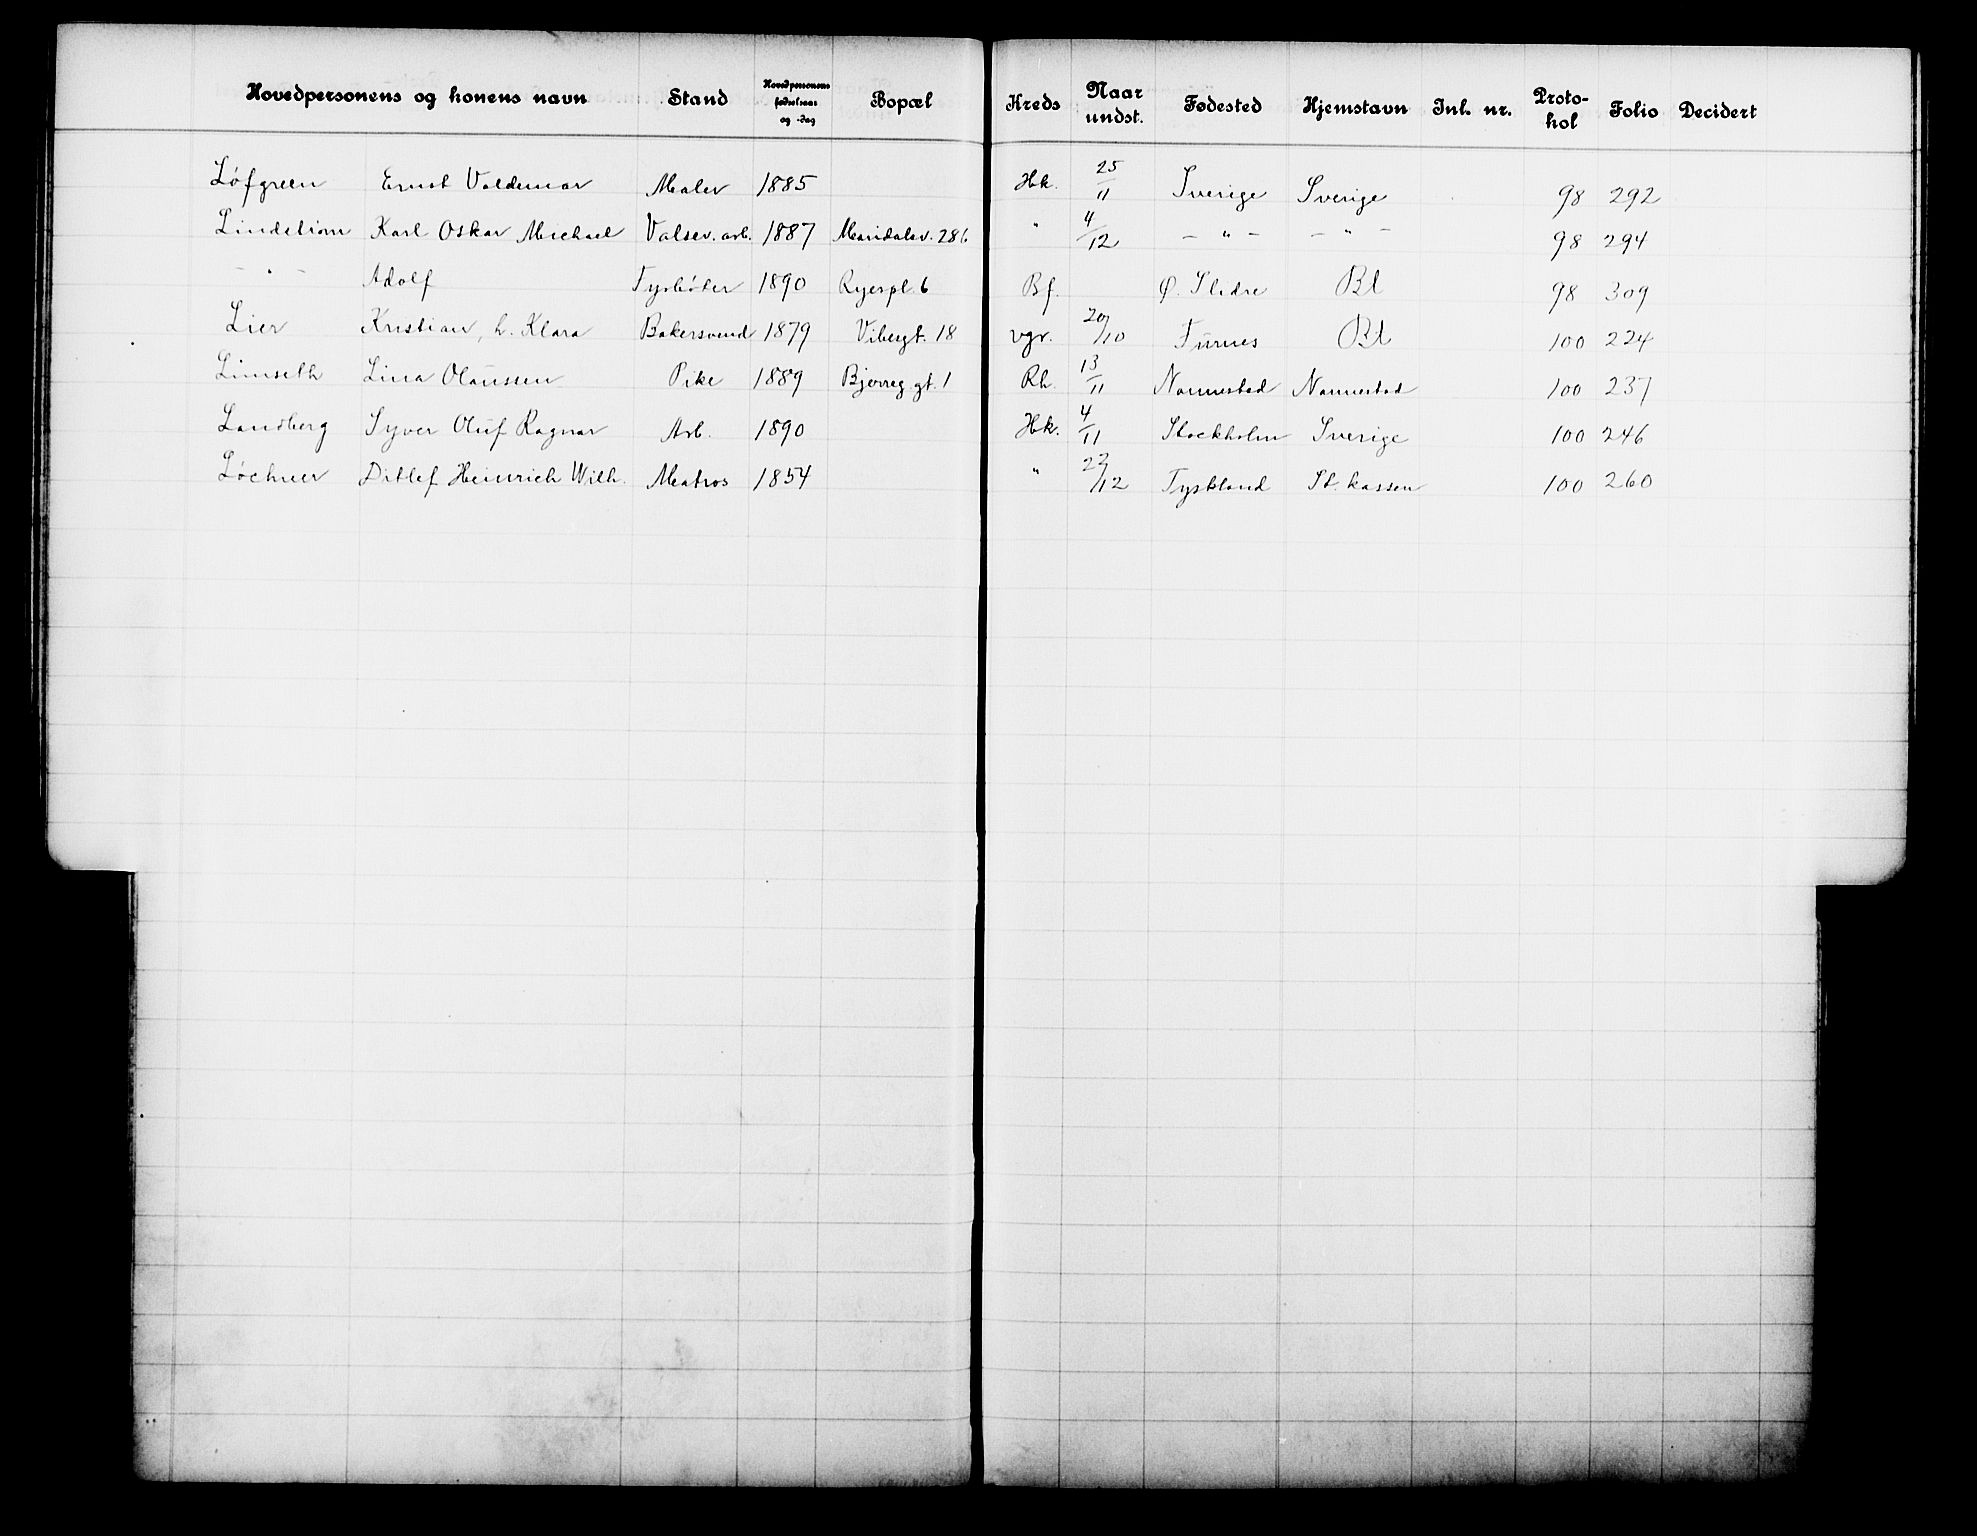 Hovedpersonens og konens navn Stand Hovedpersonens fødselsaar og -dag Bopæl Kreds Naar undst. Fødested Hjemstavn Inl. nr. Protokol Folio Decidert
Løfgreen Ernst Valdemar Maler 1885 Hk. 25/11 Sverige Sverige 98 292
Lindstrøm Karl Oskar Michael Valsev. arb. 1887 Maridalsv. 286 " 4/12 - " - - " - 98 294
- " - Adolf Fyrbøter 1890 Ryerspl. 6 Bf. Ø. Slidre Bl 98 309
Lier Kristian, h. Klara Bakersvend 1879 Vibesgt. 18 vgr. 20/10 Furnes Bl 100 224
Limseth Lina Olaussen Pike 1889 Bjerreg.gt. 1 Rh. 13/11 Nannestad Nannestad 100 237
Landberg Syver Oluf Ragnar Arb. 1890 Hk. 4/11 Stockholm Sverige 100 246
Løchner Ditlef Heinrich Wilh. Matros 1854 " 22/12 Tyskland St. kassen 100 260